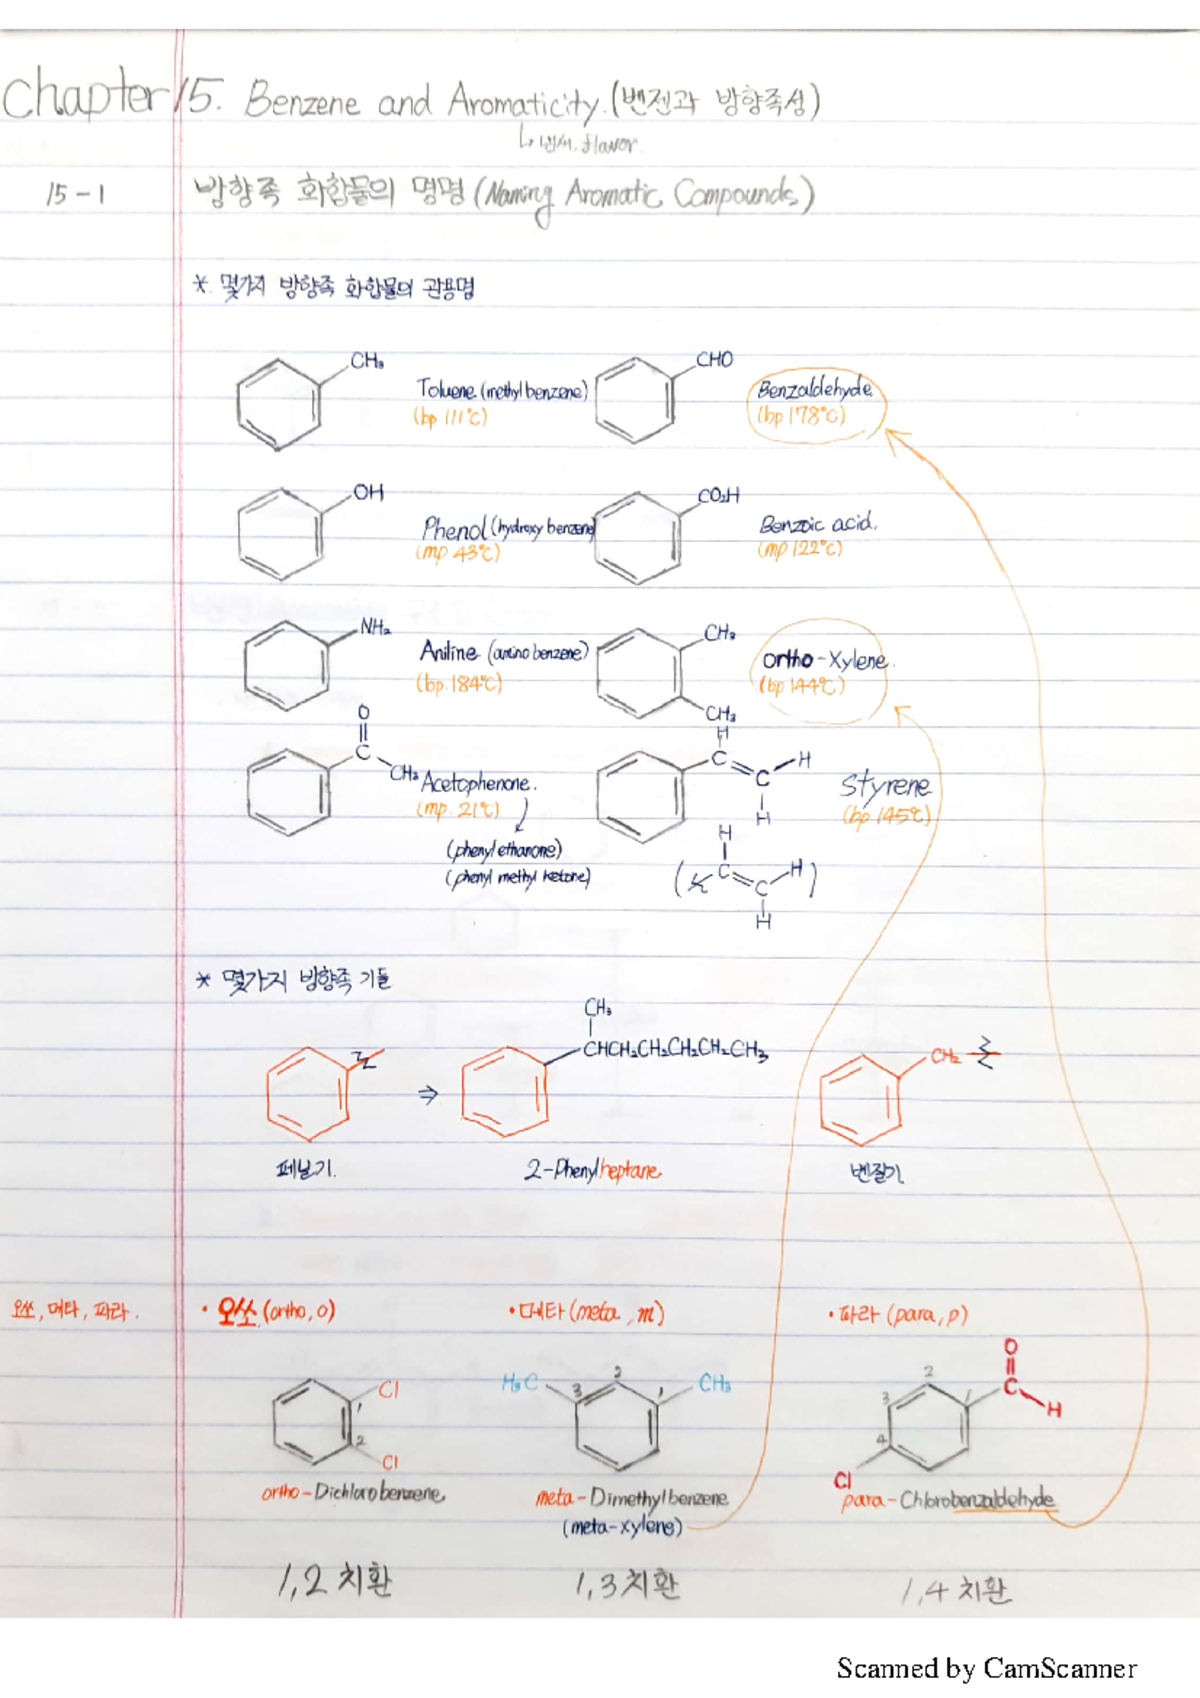 Chapter 15. Benzene and Aromaticity. (벤젠과 방향족성)
↳ 냄새. flavor.
15-1 방향족 화합물의 명명 (Naming Aromatic Compounds)
* 몇가지 방향족 화합물의 관용명
CH₃ CHO
Toluene (methyl benzene) Benzaldehyde
(bp 111℃) (bp 178℃)
OH CO₂H
Phenol (hydroxy benzene) Benzoic acid.
(mp 43℃) (mp 122℃)
NH₂ CH₃
Aniline (amino benzene) ortho-Xylene.
(bp. 184℃) (bp 144℃)
CH₃
O H
C CH₃ C C H H
Acetophenone. Styrene
(mp. 21℃) (bp 145℃)
(phenyl ethanone)
(phenyl methyl ketone)
H
( C C H )
H
* 몇가지 방향족 기들
CH₃
CHCH₂CH₂CH₂CH₂CH₃ CH₂
⇒
페닐기. 2-Phenylheptane 벤질기
오쏘, 메타, 파라. • 오쏘 (ortho, o) • 메타 (meta, m) • 파라 (para, p)
Cl 1 2 Cl
H₃C 3 2 1 CH₃
O C H 1 2 3 4 Cl
ortho-Dichlorobenzene meta-Dimethylbenzene para-Chlorobenzaldehyde
(meta-xylene)
1,2 치환 1,3 치환 1,4 치환
Scanned by CamScanner